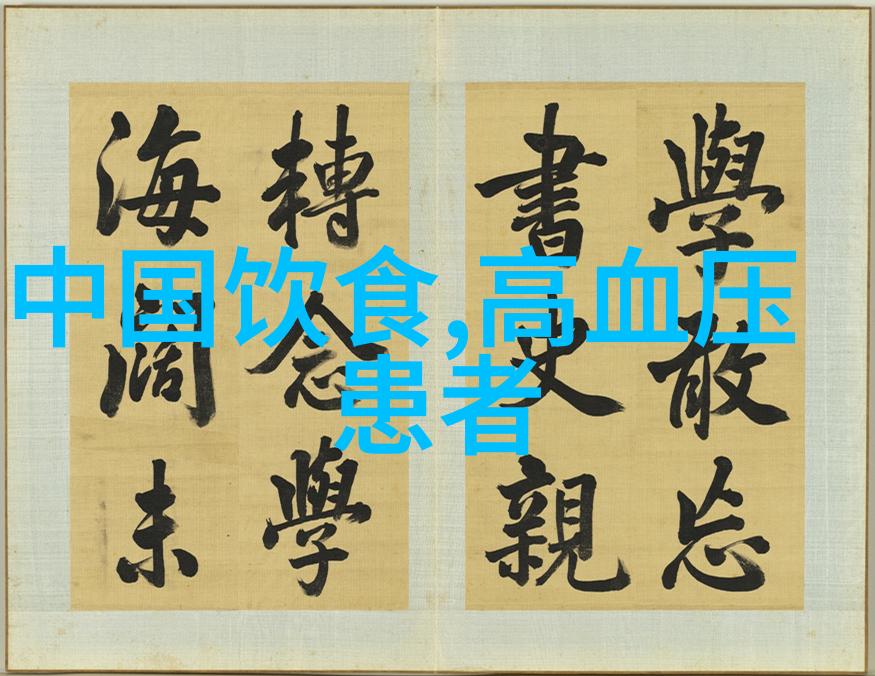 中国饮食,高血压
患者
學敢忘
書史親
轉念學
海闊未